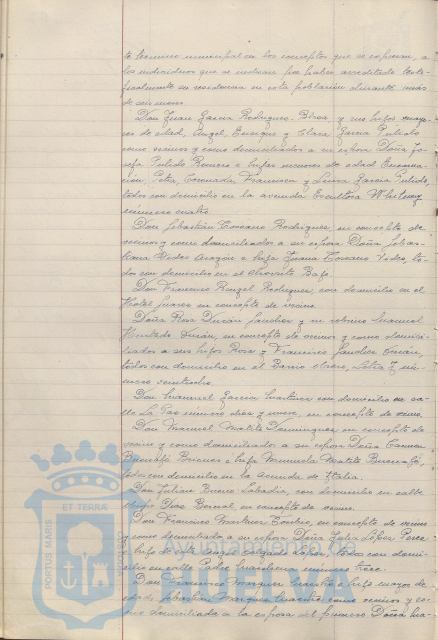 te termino municipal en los conceptos que se expresan, a
los individuos que se indican por haber acreditado testi-
ficalmente su residencia en esta poblacion durante más
de seis meses.
Don Juan Garcia Rodriguez- y sus hijos mayo-
res de edad, Angel, Enrique y Clara Garcia Pulido
como vecinos y como domiciliados a su esposa Doña Jo-
sefa Pulido Romero e hijos menores de edad Encarna-
ción, Petra, Coronada, Francisca y Luisa Garcia Pulido,
todos con domicilio en la avenida Escultora Whitney
número cuatro.
Don Sebastián Toscano Rodriguez, en concepto de
vecino y como domiciliados a su esposa Doña Sebas-
tiana Aragón e hija Juana Toscano to-
dos con domicilio en el Bajo.
Don Francisco Rangel Rodriguez, con domicilio en el
Hotel Suarez en concepto de vecino.
Doña Rosa Durán Sanchez y su sobrino Manuel
Hurtado Durán, en concepto de vecinos y como domici-
liados a sus hijos Rosa y Francisco Sanchez Durán,
todos con domicilio en el Barrio Obrero, Letra nú-
mero veintiocho.
Don Manuel Garcia Martinez con domicilio en ca-
lle La Paz número diez y nueve, en concepto de vecino.
Don Manuel Dominguez en concepto de
vecino y como domiciliados a su esposa Doña Carmen
e hija Manuela
todos con domicilio en la Avenida de Italia.
Don Julian Bueno Labadia, con domicilio en calle
Bernal, en concepto de vecino.
Don Francisco Martinez en concepto de vecino
y como domiciliados a su esposa Doña Julia López Perez
e hijo de ésta López, todos con domi-
cilio en calle Padre Marchena número trece.
Don Francisco Marquez e hijo mayor de
edad Sebastián Marquez como vecinos y co-
mo domiciliada a la esposa del primero Doña
PORTUS MARIS
ET TERRÆ
CUSTODIA
Ayuntamiento de
HUELVA